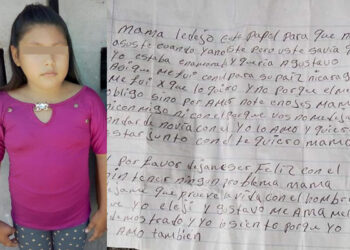 Mama le dejo este papel para que no
asuste cuando ya no este para uste savia q
Yo estaba enamorada y queria a Gustavo
Asi que me fui con el para su paiz nicarag
Me fui x que lo quiero y no porque el me
obligo sino por Amor no te enojes Mama
ni conmigo ni con el porque vos no me dejas
andar de novia con el yo lo Amo y quiero
estar junto con el te quiero mama
Por favor dejame ser Feliz con el
sin tener ningun problema mama
dejame que prueve la vida con el hombre
que yo eleji y Gustavo me AMA me lo
demostrado y yo siento que yo
lo AMO tambien